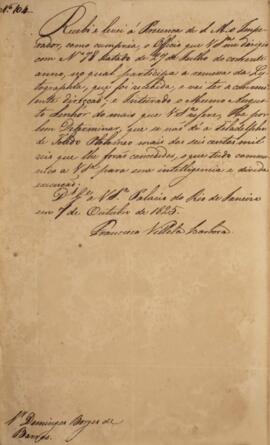 Nº 104.
Recebi e levei á Presença de S. M. o Impe-
rador, como cumpria, o Officio que V. Sª. me dirigio
com Nº 78 datado de 27 de Julho do corrente
anno, no qual participa a remessa da Ly-
tographia, que foi recebida, e vai ter a conveni-
ente direcção; e Inteirado o Mesmo Augus-
to Senhor do mais que V. Sª. refere, Ha por
bem Determinar, que se não dê a
de Toledo mais das seis centos mil
reis que lhe forão concedidos, o que tudo commu-
nico a V. Sª. para sua intelligencia e devida
execução.
Ds. Ge. a V. Sª. Palacio do Rio de Janeiro
em 7 de Outubro de 1825.
Francisco Villela Barbosa
Sr. Domingos Borges de
Barros.